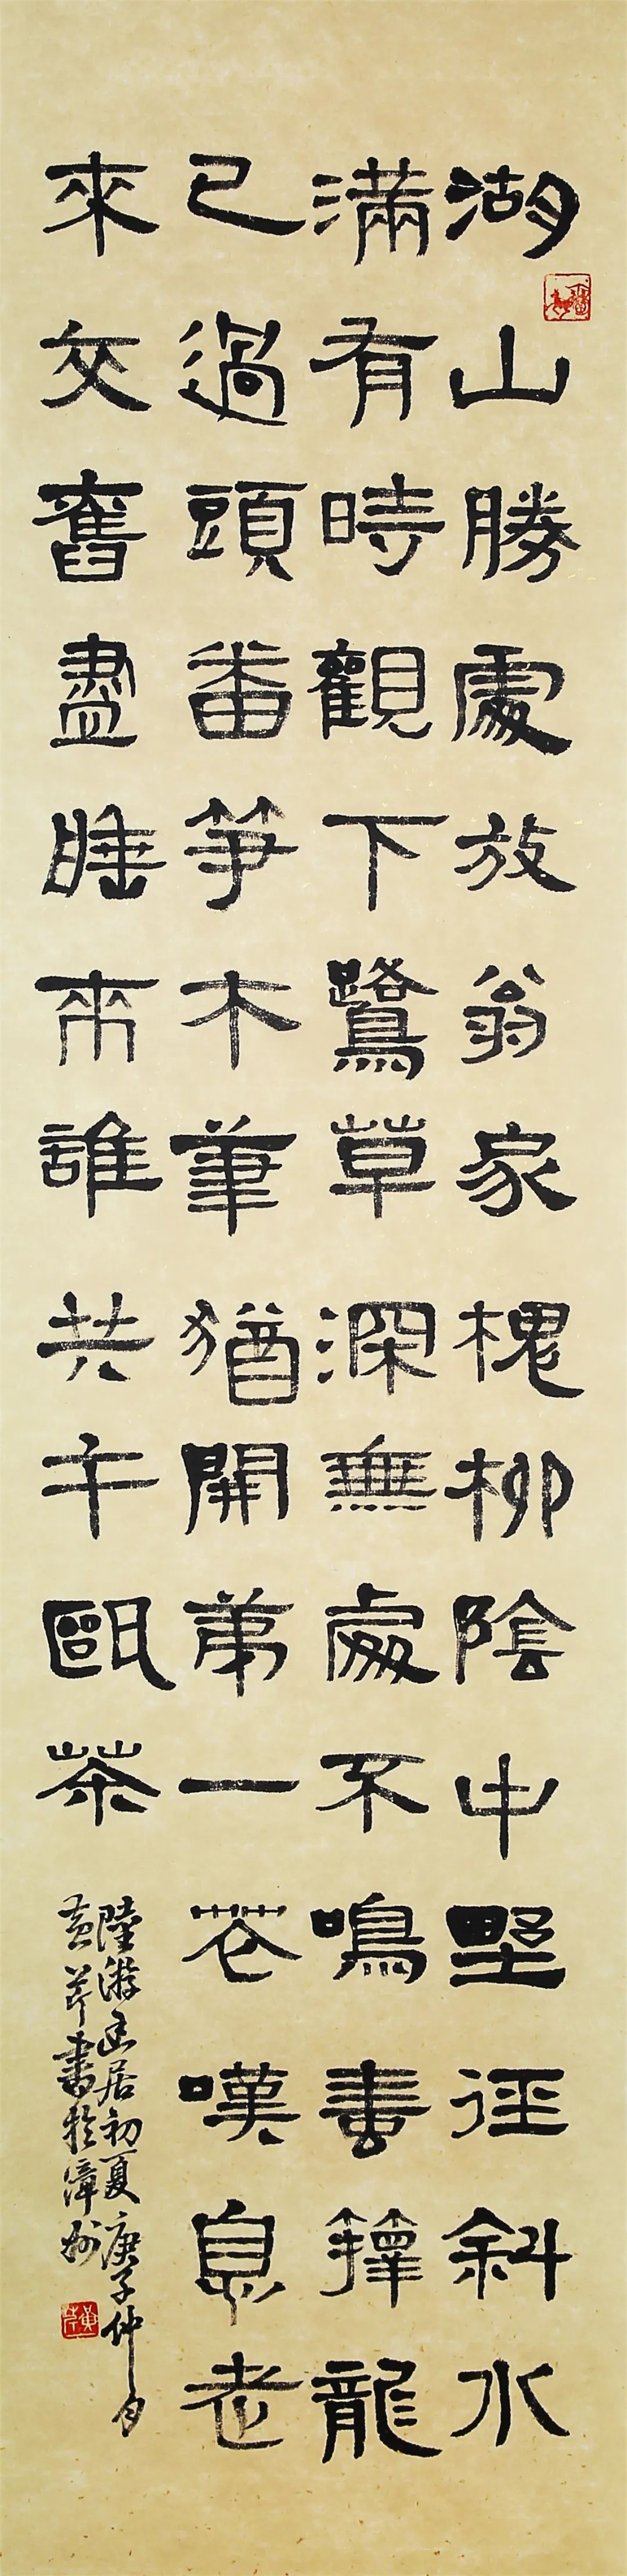 湖山勝處放翁家槐柳陰中野徑斜水
滿有時觀下鷺草深無處不鳴蛙籜龍
已過頭番笋木筆猶開第一花嘆息老
來交舊盡睡來誰共午甌茶
陸游幽居初夏 庚子仲月
黃芹書於漳州
黃芹